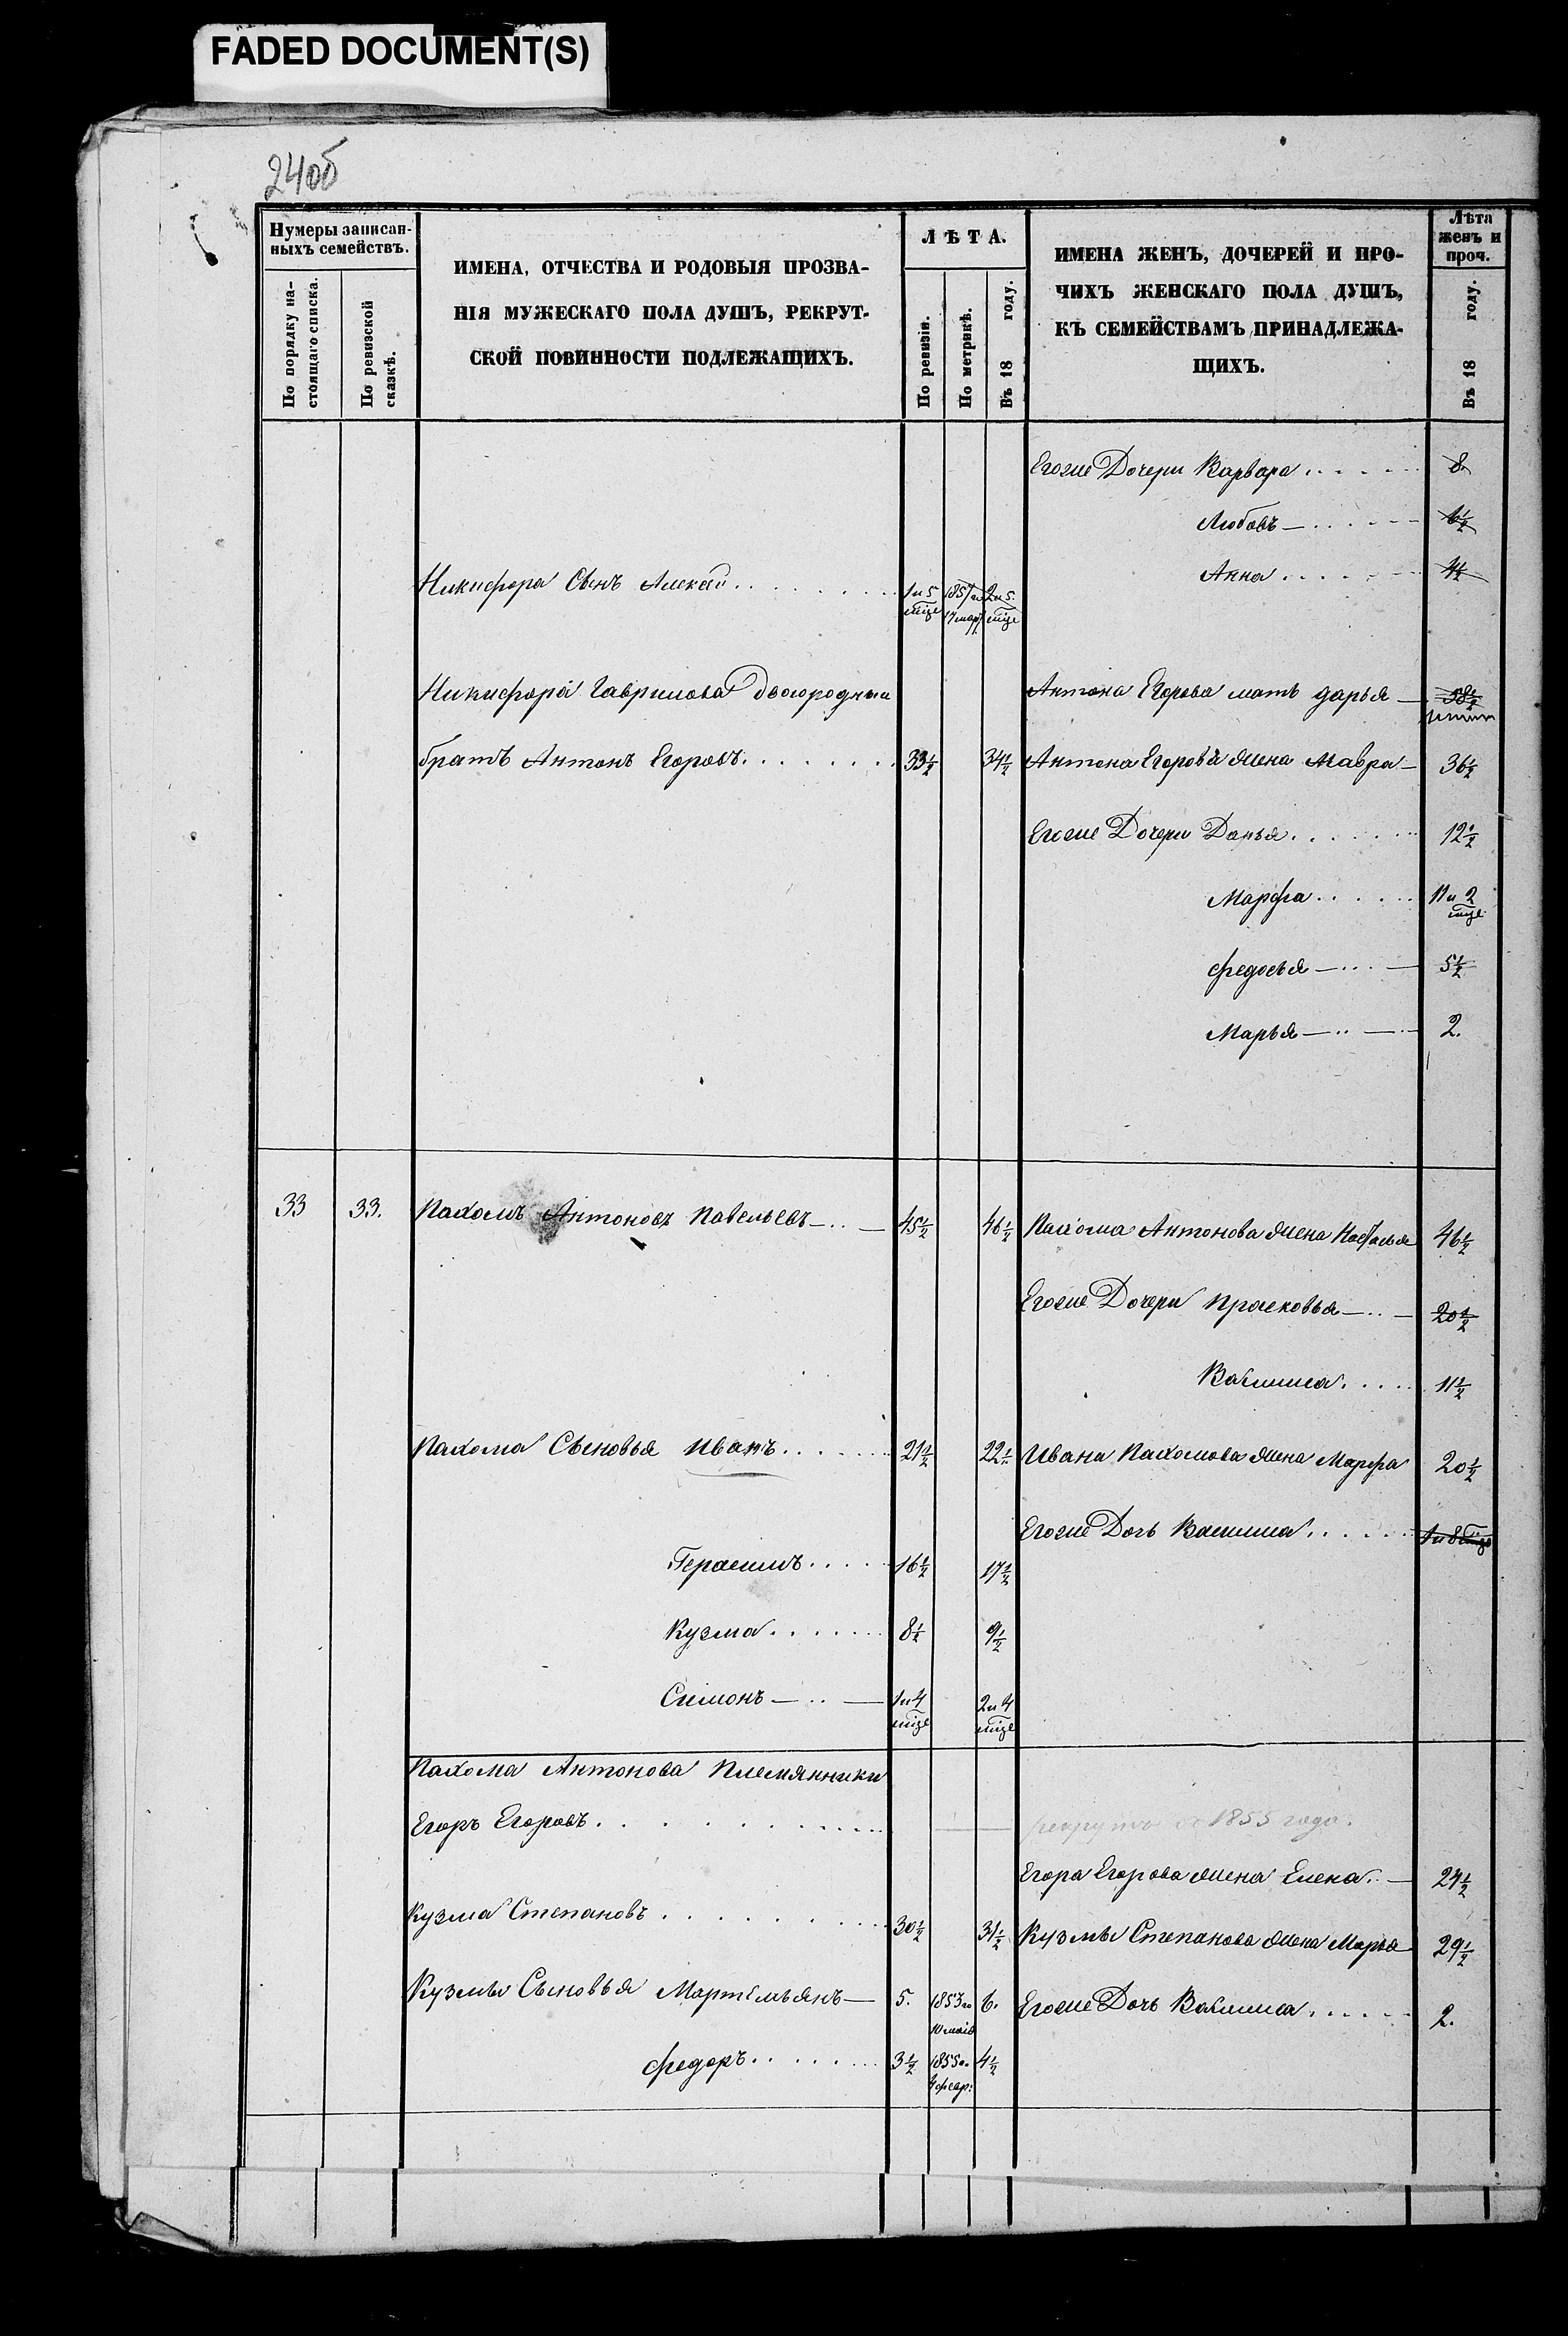 FADED DOCUMENT(S)
24об
Нумеры записан-
ныхъ семействъ.
По порядку на-
стоящаго списка.
По ревизской
сказкѣ.
ИМЕНА, ОТЧЕСТВА И РОДОВЫЯ ПРОЗВА-
НІЯ МУЖЕСКАГО ПОЛА ДУШЪ, РЕКРУТ-
СКОЙ ПОВИННОСТИ ПОДЛЕЖАЩИХЪ.
ЛѢТА.
По ревизіи.
По метрикѣ.
Въ 18 году.
ИМЕНА ЖЕНЪ, ДОЧЕРЕЙ И ПРО-
ЧИХЪ ЖЕНСКАГО ПОЛА ДУШЪ,
КЪ СЕМЕЙСТВАМЪ ПРИНАДЛЕЖА-
ЩИХЪ.
Лѣта
женъ и
проч.
Въ 18 году.
Егоже Дочери Варвара 8
Любовь 6½
Никифора Сынъ Алексей 1 и 5 мце 1857 го 17 мар 2 и 5 мце Анна 4½
Никифора Гаврилова Двоюродныи Антона Егорова мать дарья 58½
братъ Антонъ Егоровъ 33½ 34½ Антона Егорова жена Мавра 36½
Егоже Дочери Дарья 12½
Марфа 11 и 2 мце
федосья 5½
Марья 2.
33 33. Пахомъ Антоновъ Павельевъ 45½ 46½ Пахома Антонова жена Наталья 46½
Егоже Дочери Прасковья 20½
Васлиса 11½
Пахома Сыновья Иванъ 21½ 22½ Ивана Пахомова жена Марфа 20½
Егоже Дочь Василиса 1 и 8 мце
Герасимъ 16½ 17½
Кузма 8½ 9½
Симонъ 1 и 4 мце 2 и 4 мце
Пахома Антонова Племянники
Егоръ Егоровъ рекрутъ съ 1855 года.
Егора Егорова жена Елена 24½
Кузма Степановъ 30½ 31½ Кузмы Степанова жена Марья 29½
Кузмы Сыновья Мартемьянъ 5. 1853 го 10 маія 6. Егоже Дочь Васлиса 2.
федоръ 3½ 1855 го 4 февр: 4½